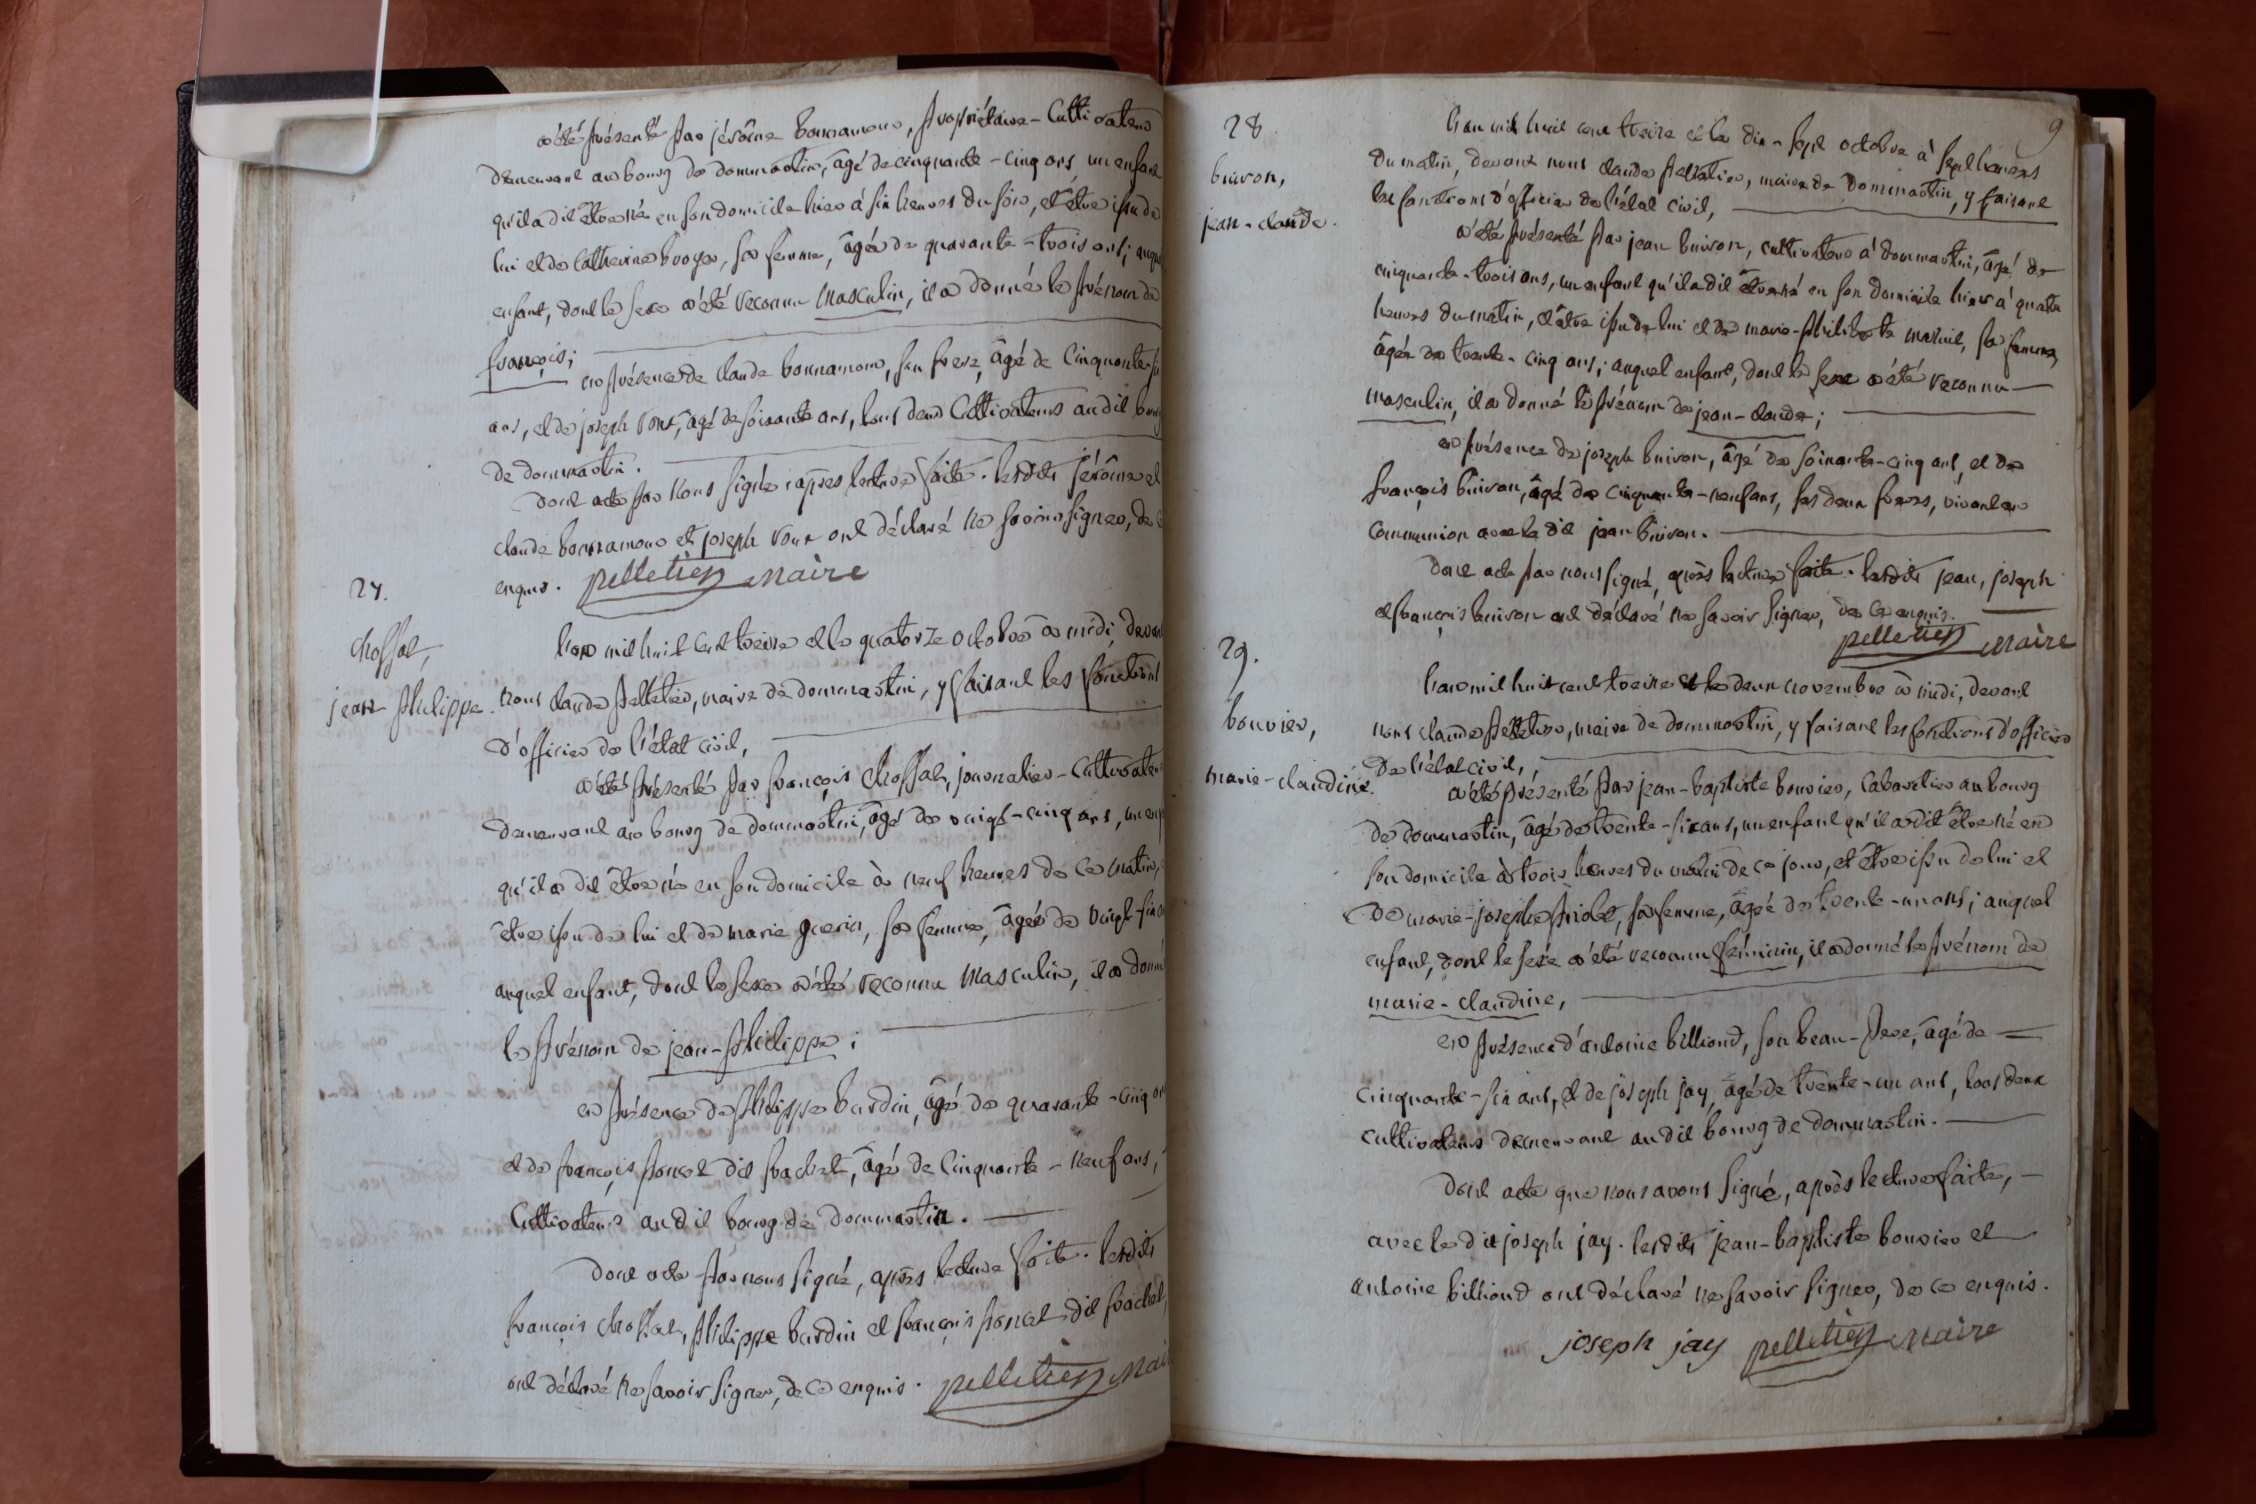 a été présenté par jérôme bonnamour, propriétaire-cultivateur
demeurant au bourg de dommartin, âgé de cinquante-cinq ans, un enfant
qu'il a dit être né en son domicile hier à six heures du soir, et être issu de
lui et de Catherine broyer, sa femme, âgée de quarante-trois ans; auquel
enfant, dont le sexe a été reconnu masculin, il a donné le prénom de
françois;
en présence de claude bonnamour, son frere, âgé de Cinquante-six
ans, et de joseph roux, âgé de soixante ans, tous deux Cultivateurs audit bourg
de dommartin.
dont acte par Nous signé après lecture faite. lesdits jérôme et
claude bonnamour et joseph roux ont déclaré ne savoir signer, de ce
enquis. pelletier maire
27.
Chossat,
jean philippe.
L'an mil huit cent treize et le quatorze octobre à midi, devant
nous claude pelletier, maire de dommartin, y faisant les fonctions
d'officier de l'état civil,
a été présenté par françois Chossat, journalier-Cultivateur
demeurant au bourg de dommartin, âgé de vingt-cinq ans, un enfant
qu'il a dit être né en son domicile à neuf heures de ce matin, et
être issu de lui et de marie guerin, sa femme, âgée de vingt-six ans
auquel enfant, dont le sexe a été reconnu masculin, il a donné
le prénom de jean-philippe;
en présence de philippe bardin, âgé de quarante-cinq ans
et de françois poncet dit frachet, âgé de Cinquante-neuf ans,
Cultivateurs audit bourg de dommartin.
dont acte par nous signé, après lecture faite. lesdits
françois chossat, philippe bardin et françois poncet dit frachet,
ont déclaré ne savoir signer, de ce enquis. pelletier maire
9
28.
buiron,
jean-claude.
L'an mil huit cent treize et le dix-sept octobre à sept heures
du matin, devant nous claude pelletier, maire de Dommartin, y faisant
les fonctions d'officier de l'état civil,
a été présenté par jean buiron, cultivateur à dommartin, âgé de
cinquante-trois ans, un enfant qu'il a dit être né en son domicile hier à quatre
heures du matin, et être issu de lui et de marie-philiberte maruil, sa femme,
âgée de trente-cinq ans; auquel enfant, dont le sexe a été reconnu
masculin, il a donné le prénom de jean-claude;
en présence de joseph buiron, âgé de soixante-cinq ans, et de
françois buiron, âgé de cinquante-neuf ans, ses deux freres, vivant en
communion avec le dit jean buiron.
dont acte par nous signé, après lecture faite. lesdits jean, joseph
et françois buiron ont déclaré ne savoir signer, de ce enquis.
pelletier maire
29.
bouvier,
marie-claudine.
L'an mil huit cent treize et le deux novembre à midi, devant
nous claude pelletier, maire de dommartin, y faisant les fonctions d'officier
de l'état civil,
a été présenté par jean-baptiste bouvier, Cabaretier au bourg
de dommartin, âgé de trente-six ans, un enfant qu'il a dit être né en
son domicile à trois heures du matin de ce jour, et être issu de lui et
de marie-josephe priolet, sa femme, âgée de trente-un ans; auquel
enfant, dont le sexe a été reconnu féminin, il a donné le prénom de
marie-claudine,
en présence d'antoine billiond, son beau-pere, âgé de
cinquante-six ans, et de joseph jay, âgé de trente-un ans, tous deux
cultivateurs demeurant audit bourg de dommartin.
dont acte que nous avons signé, après lecture faite,
avec le dit joseph jay. lesdits jean-baptiste bouvier et
antoine billiond ont déclaré ne savoir signer, de ce enquis.
joseph jay pelletier maire